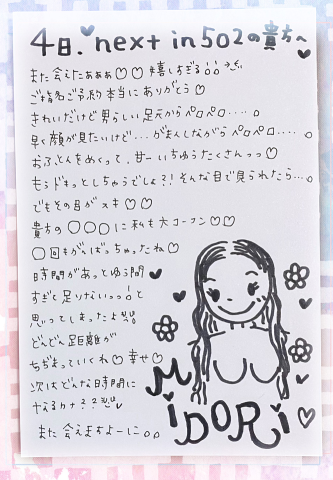 4日.♥next in 502の貴方へ
また会えたぁぁぁ♡♡嬉しすぎる
ご指名ご予約本当にありがとう♡
きれいだけど男らしい足元からペロペロ‥‥。
早く顔が見たいけど…がまんしながらペロペロ‥‥。
おふとんをめくって、甘ーいちゅうたくさんっっ♡
もぅドキッとしちゃうでしょ?!そんな目で見られたら…。
でもその目がスキ♡♡
貴方の〇〇〇に私も大コーフン♡♡
〇回もがんばっちゃったね♡
時間があっとゆう間
すぎて足りないっっ!と
思ってしまったよ
どんどん距離が
ちぢまっていくね♡幸せ♡
次はどんな時間に
なるカナ??
また会えますよーに。。
MIDORI